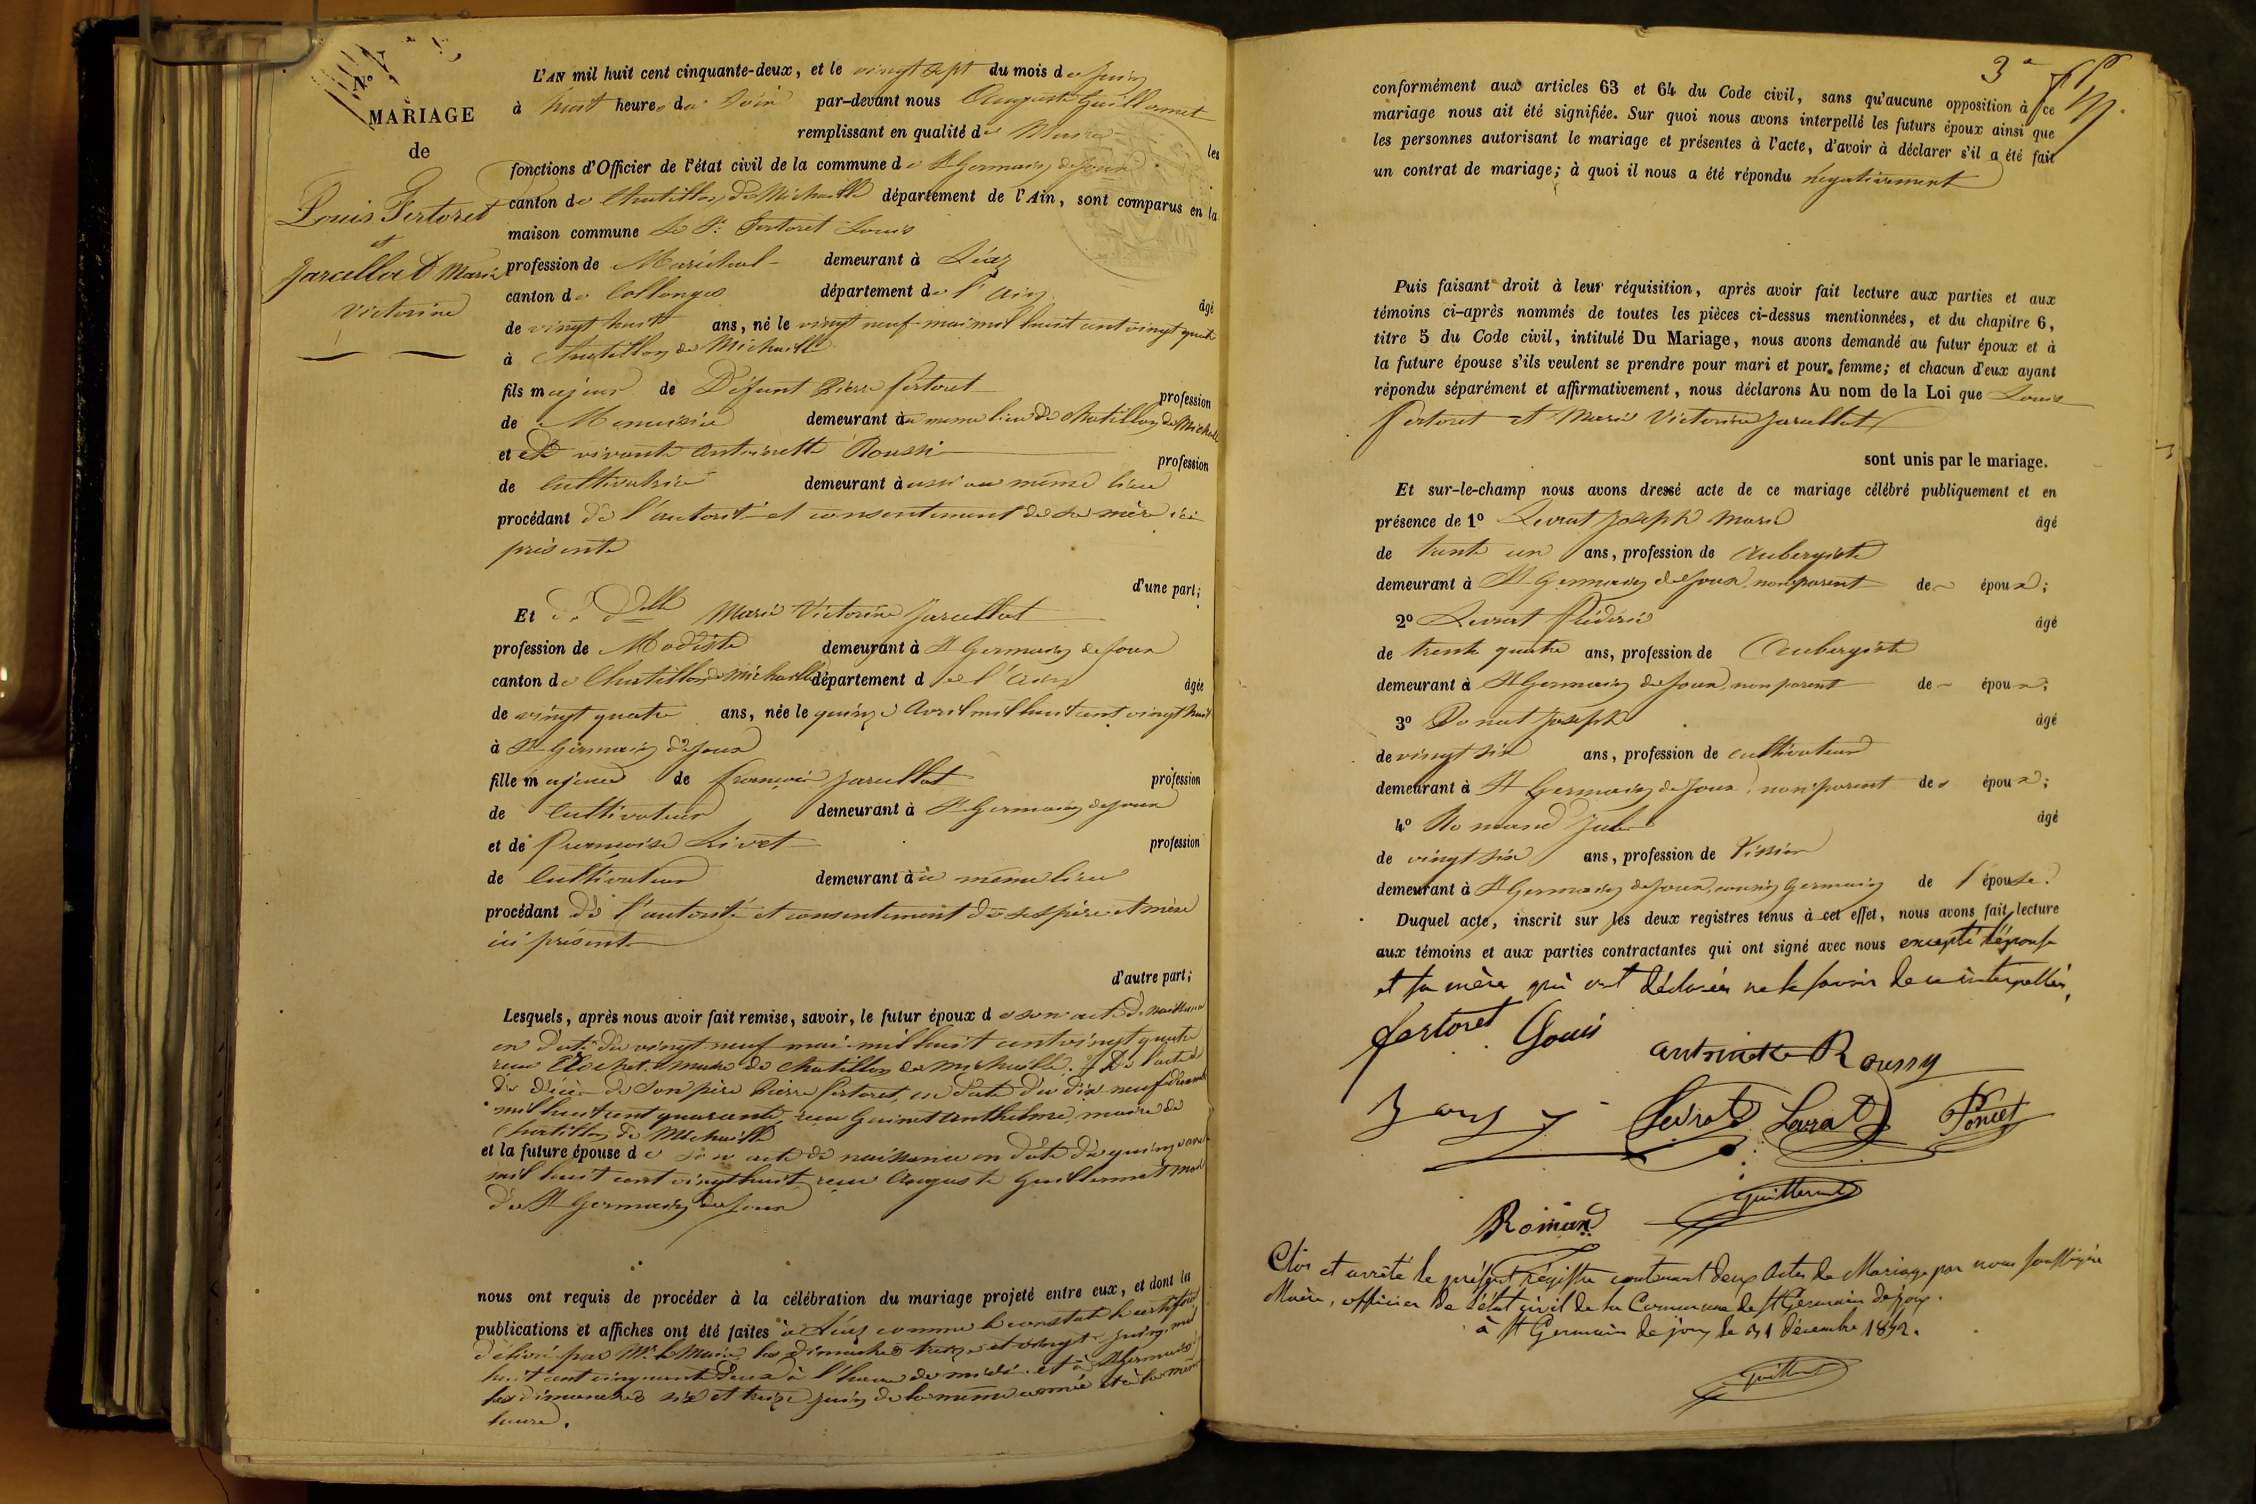 N°
MARIAGE
de
Louis Fertoret
et
Jarcellat Marie
Victorine
L'AN mil huit cent cinquante-deux, et le vingt sept du mois de juin
à huit heures du soir par-devant nous Auguste Guillermet
remplissant en qualité de Maire les
fonctions d'Officier de l'état civil de la commune de St Germain de Joux
canton de Chatillon de Michaille département de l'Ain, sont comparus en la
maison commune Le Sr Fertoret Louis
profession de Maréchal demeurant à Léaz
canton de Collonges département de l'Ain âgé
de vingt huit ans, né le vingt neuf mai mil huit cent vingt quatre
à Chatillon de Michaille
fils majeur de Défunt Pierre Fertoret profession
de Menuisier demeurant à au même lieu de Chatillon de Michaille
et de vivante Antoinette Roussi profession
de Cultivatrice demeurant à aussi au même lieu
procédant de l'autorité et consentement de sa mère ici
présente
d'une part;
Et de Dlle Marie Victorine Jarcellat
profession de Modiste demeurant à St Germain de Joux
canton de Chatillon de Michaille département de l'Ain âgée
de vingt quatre ans, née le quinze Avril mil huit cent vingt huit
à St Germain de Joux
fille majeure de François Jarcellat profession
de Cultivateur demeurant à St Germain de Joux
et de Françoise Livet profession
de Cultivateur demeurant à au même lieu
procédant de l'autorité et consentement de ses père et mère
ici présents
d'autre part;
Lesquels, après nous avoir fait remise, savoir, le futur époux de son acte de naissance
en date du vingt neuf mai mil huit cent vingt quatre
reçu maire de Chatillon de Michaille. De l'acte de
de décès de son père Pierre Fertoret, en date du dix neuf
mil huit cent quarante, reçu Guinet Anthelme, maire de
Chatillon de Michaille
et la future épouse de son acte de naissance en date du quinze avril
mil huit cent vingt huit reçu Auguste Guillermet maire
de St Germain de Joux
nous ont requis de procéder à la célébration du mariage projeté entre eux, et dont les
publications et affiches ont été faites à Léaz comme le constate le certificat
délivré par Mr le Maire, les dimanches treize et vingt juin mil
huit cent cinquante deux à l'heure de midi et à St Germain
les dimanches six et treize juin de la même année et à la même
heure.
3e
conformément aux articles 63 et 64 du Code civil, sans qu'aucune opposition à ce
mariage nous ait été signifiée. Sur quoi nous avons interpellé les futurs époux ainsi que
les personnes autorisant le mariage et présentes à l'acte, d'avoir à déclarer s'il a été fait
un contrat de mariage; à quoi il nous a été répondu négativement
Puis faisant droit à leur réquisition, après avoir fait lecture aux parties et aux
témoins ci-après nommés de toutes les pièces ci-dessus mentionnées, et du chapitre 6,
titre 5 du Code civil, intitulé Du Mariage, nous avons demandé au futur époux et à
la future épouse s'ils veulent se prendre pour mari et pour femme; et chacun d'eux ayant
répondu séparément et affirmativement, nous déclarons Au nom de la Loi que Louis
Fertoret et Marie Victorine Jarcellat
sont unis par le mariage.
Et sur-le-champ nous avons dressé acte de ce mariage célébré publiquement et en
présence de 1° Levrat Joseph Marie âgé
de trente un ans, profession de Aubergiste
demeurant à St Germain de Joux, non parent de époux;
2° Levrat Frédéric âgé
de trente quatre ans, profession de Aubergiste
demeurant à St Germain de Joux, non parent de époux;
3° Poncet Joseph âgé
de vingt six ans, profession de cultivateur
demeurant à St Germain de Joux, non parent des époux;
4° Romand Jules âgé
de vingt six ans, profession de
demeurant à St Germain de Joux, cousin Germain de l'épouse.
Duquel acte, inscrit sur les deux registres tenus à cet effet, nous avons fait lecture
aux témoins et aux parties contractantes qui ont signé avec nous excepté l'épouse
et sa mère qui ont déclarées ne le savoir de ce interpellées,
fertoret Louis
antoinette Roussy
Levrat Levrat Poncet
Guillermet
Romand
Clos et arrêté le présent registre contenant deux Actes de Mariage par nous soussigné
Maire, officier de l'état civil de la Commune de St Germain de Joux.
à St Germain de joux le 31 décembre 1852.
Guillermet